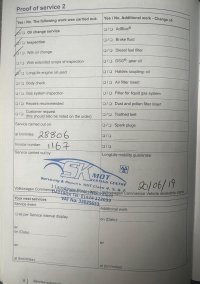 Proof of service 2
Yes / No The following work was carried out:
Oil change service
Inspection
With oil change
With extended scope of inspection
LongLife engine oil used
Body check
Gas system inspection
Repairs recommended
Customer request
(this should also be listed on the order)
Service carried out on
at km/miles 28806
Invoice number 1167
Service carried out by
Yes / No Additional work - Change of:
AdBlue®
Brake fluid
Diesel fuel filter
DSG® gear oil
Haldex coupling: oil
Air filter insert
Filter for liquid gas system
Dust and pollen filter insert
Toothed belt
Spark plugs
LongLife mobility guarantee
SK MOT
20/06/19
Your next services
Service event
Additional work
or as per Service interval display
on (Date)
or
at (km/miles)